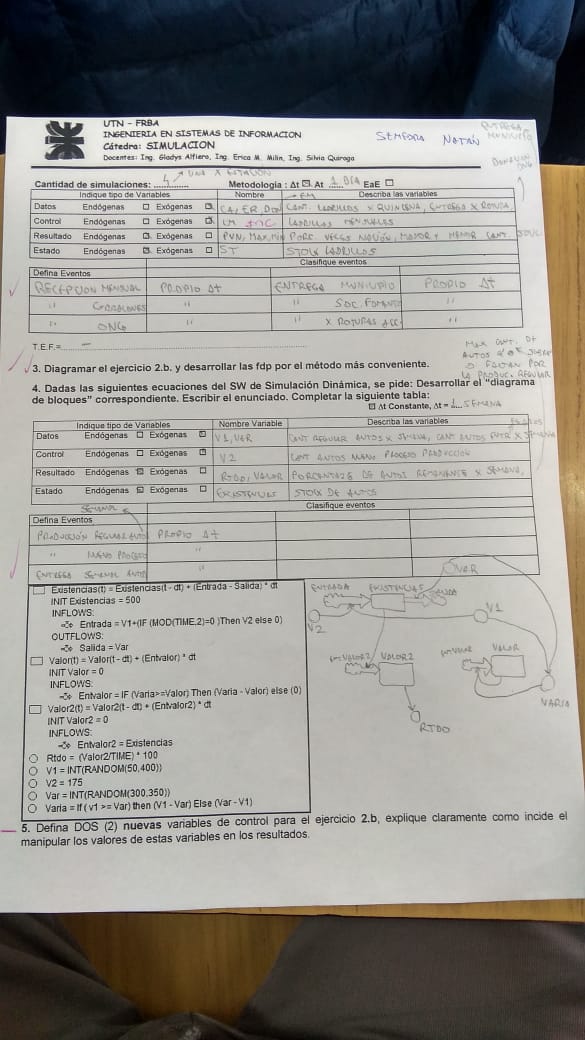 UTN - FRBA
INGENIERIA EN SISTEMAS DE INFORMACION
Cátedra: SIMULACION
Docentes: Ing. Gladys Alfiero, Ing. Erica M. Milin, Ing. Silvia Quiroga
SEMFORA NATÁN
ENTREGA MUNICIPIO
DONACION ONG
4 → UNA X ESTACIÓN
Cantidad de simulaciones: Metodología : Δt ☒ Δt 1 DIA EaE ☐
Indique tipo de Variables Nombre Describa las variables
Datos Endógenas ☐ Exógenas ☒ CA, ER, DON CANT. LADRILLOS X QUINCENA, ENTREGA X ROTURA,
Control Endógenas ☐ Exógenas ☒ LM LADRILLOS MENSUALES
Resultado Endógenas ☒ Exógenas ☐ PVN, MAX, MIN PORC. VECES NO MAYOR Y MENOR CANT.
Estado Endógenas ☒ Exógenas ☐ ST STOCK LADRILLOS
Clasifique eventos
Defina Eventos
RECEPCION MENSUAL PROPIO Δt ENTREGA MUNICIPIO PROPIO Δt
" CORRALONES " " SOC. FOMENTO "
" ONG " " X ROTURAS ACC. "
T.E.F.= —
3. Diagramar el ejercicio 2.b. y desarrollar las fdp por el método más conveniente.
MAX CANT. DE AUTOS Q' O FALTAN POR LA PRODUC. REGULAR
4. Dadas las siguientes ecuaciones del SW de Simulación Dinámica, se pide: Desarrollar el "diagrama
de bloques" correspondiente. Escribir el enunciado. Completar la siguiente tabla:
☒ Δt Constante, Δt = 1 SEMANA
Indique tipo de Variables Nombre Variable Describa las variables
Datos Endógenas ☐ Exógenas ☒ V1, VAR CANT REGULAR AUTOS X SEMANA, CANT AUTOS X SEMANA
Control Endógenas ☐ Exógenas ☒ V2 CANT AUTOS NUEVO PROCESO PRODUCCIÓN
Resultado Endógenas ☒ Exógenas ☐ RTDO, VALOR PORCENTAJE DE AUTOS REMANENTE X SEMANA,
Estado Endógenas ☒ Exógenas ☐ EXISTENCIAS STOCK DE AUTOS
SEMANAL
Clasifique eventos
Defina Eventos
PRODUCCIÓN REGULAR AUTO PROPIO Δt
" NUEVO PROCESO "
ENTREGA SEMANAL AUTOS "
Existencias(t) = Existencias(t - dt) + (Entrada - Salida) * dt
INIT Existencias = 500
INFLOWS:
Entrada = V1+(IF (MOD(TIME,2)=0 )Then V2 else 0)
OUTFLOWS:
Salida = Var
Valor(t) = Valor(t - dt) + (Entvalor) * dt
INIT Valor = 0
INFLOWS:
Entvalor = IF (Varia>=Valor) Then (Varia - Valor) else (0)
Valor2(t) = Valor2(t - dt) + (Entvalor2) * dt
INIT Valor2 = 0
INFLOWS:
Entvalor2 = Existencias
Rtdo = (Valor2/TIME) * 100
V1 = INT(RANDOM(50,400))
V2 = 175
Var = INT(RANDOM(300,350))
Varia = If ( v1 >= Var) then (V1 - Var) Else (Var - V1)
ENTRADA EXISTENCIAS SALIDA VAR
V2 V1
ENTVALOR2 VALOR2 ENTVALOR VALOR
RTDO VARIA
5. Defina DOS (2) nuevas variables de control para el ejercicio 2.b, explique claramente como incide el
manipular los valores de estas variables en los resultados.